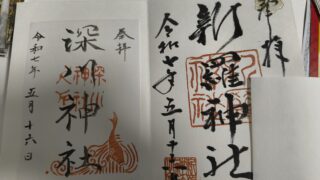 奉拝
深川神社
令和七年 五月十六日
奉拝
新羅神社
令和七年五月十